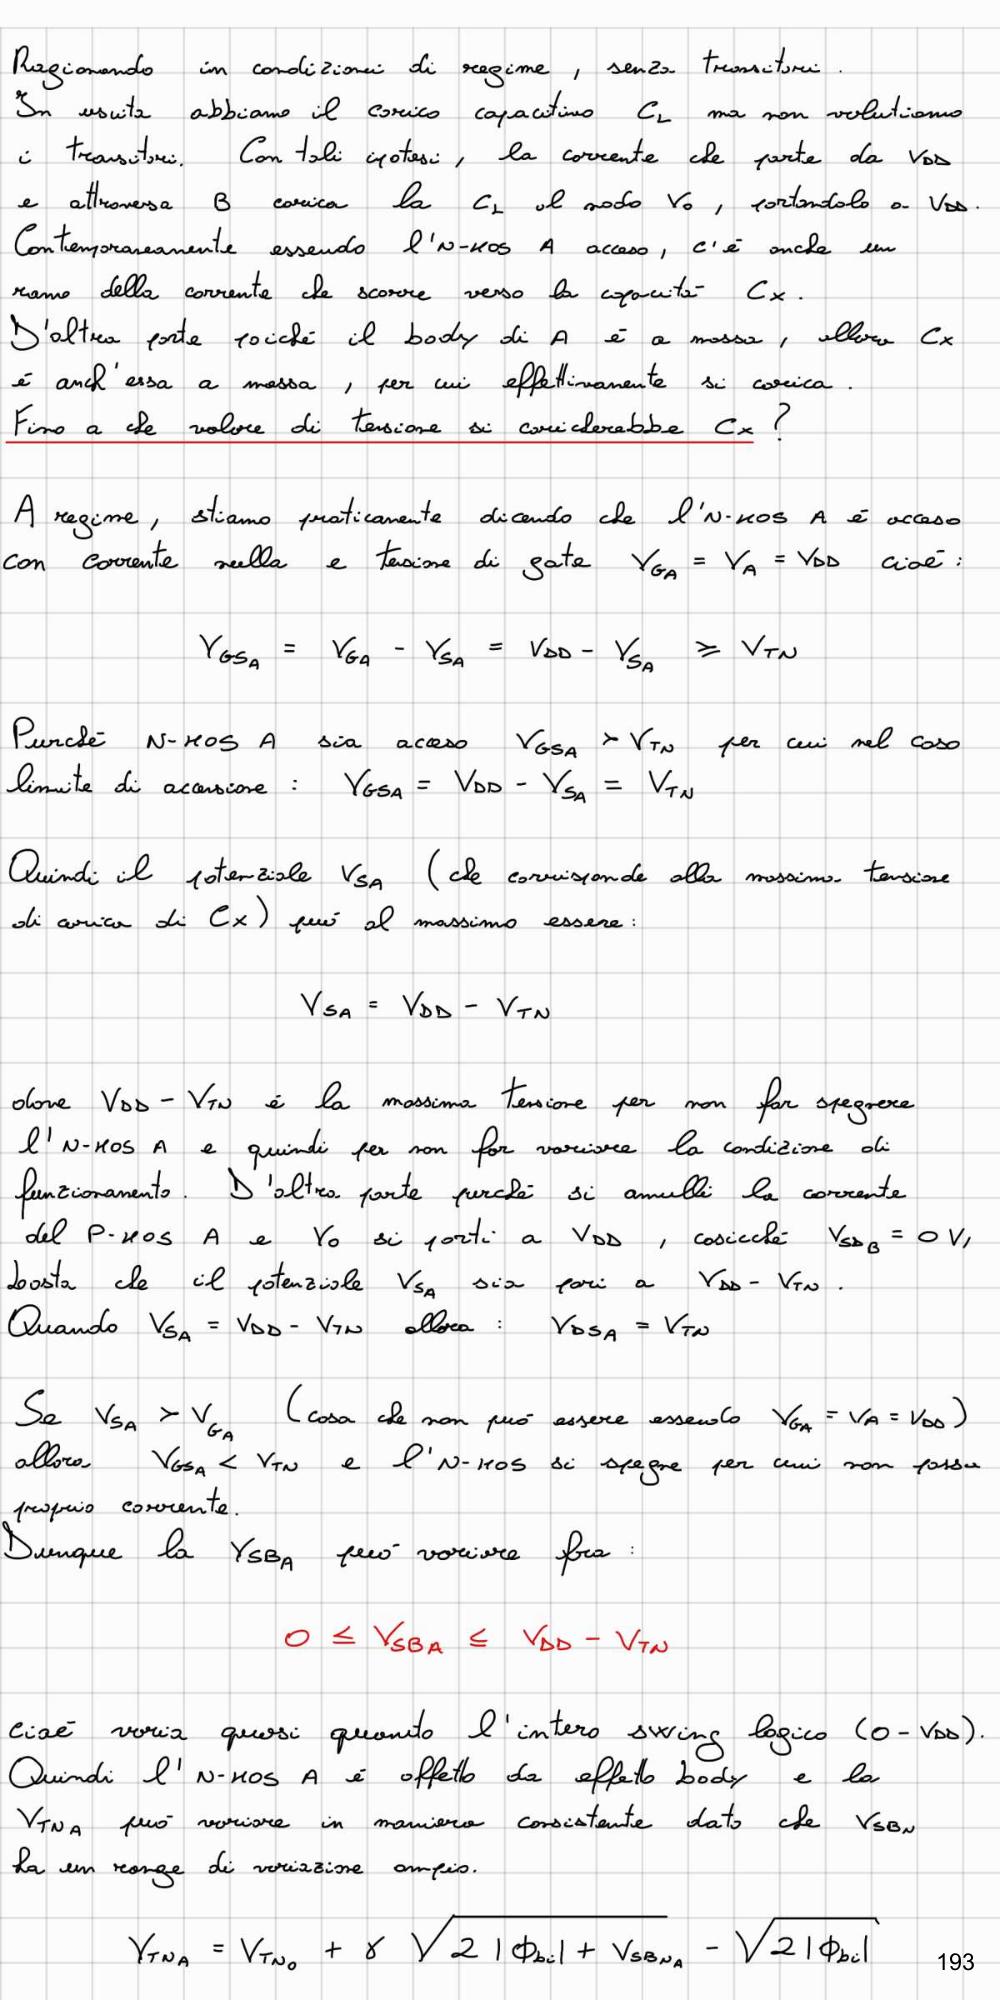 Ragionando in condizioni di regime, senza transitori.
In uscita abbiamo il carico capacitivo C_L ma non valutiamo
i transitori. Con tali ipotesi, la corrente che parte da V_DD
e attraversa B carica la C_L al nodo V_0, portandolo a V_DD.
Contemporaneamente essendo l'N-MOS A acceso, c'è anche un
ramo della corrente che scorre verso la capacità C_x.
D'altra parte poiché il body di A è a massa, allora C_x
è anch'essa a massa, per cui effettivamente si carica.
Fino a che valore di tensione si caricherebbe C_x?
A regime, stiamo praticamente dicendo che l'N-MOS A è acceso
con corrente nulla e tensione di gate V_GA = V_A = V_DD cioè:
V_GSA = V_GA - V_SA = V_DD - V_SA ≥ V_TN
Purché N-MOS A sia acceso V_GSA > V_TN per cui nel caso
limite di accensione: V_GSA = V_DD - V_SA = V_TN
Quindi il potenziale V_SA (che corrisponde alla massima tensione
di carica di C_x) può al massimo essere:
V_SA = V_DD - V_TN
dove V_DD - V_TN è la massima tensione per non far spegnere
l'N-MOS A e quindi per non far variare la condizione di
funzionamento. D'altra parte purché si annulli la corrente
del P-MOS A e V_0 si porti a V_DD, cosicché V_SDB = 0 V,
basta che il potenziale V_SA sia pari a V_DD - V_TN.
Quando V_SA = V_DD - V_TN allora: V_DSA = V_TN
Se V_SA > V_GA (cosa che non può essere essendo V_GA = V_A = V_DD)
allora V_GSA < V_TN e l'N-MOS si spegne per cui non passa
proprio corrente.
Dunque la V_SBA può variare fra:
0 ≤ V_SBA ≤ V_DD - V_TN
cioè varia quasi quanto l'intero swing logico (0 - V_DD).
Quindi l'N-MOS A è affetto da effetto body e la
V_TNA può variare in maniera consistente dato che V_SBN
ha un range di variazione ampio.
V_TNA = V_TN0 + γ √(2|Φ_bi| + V_SBNA) - √(2|Φ_bi|)
193